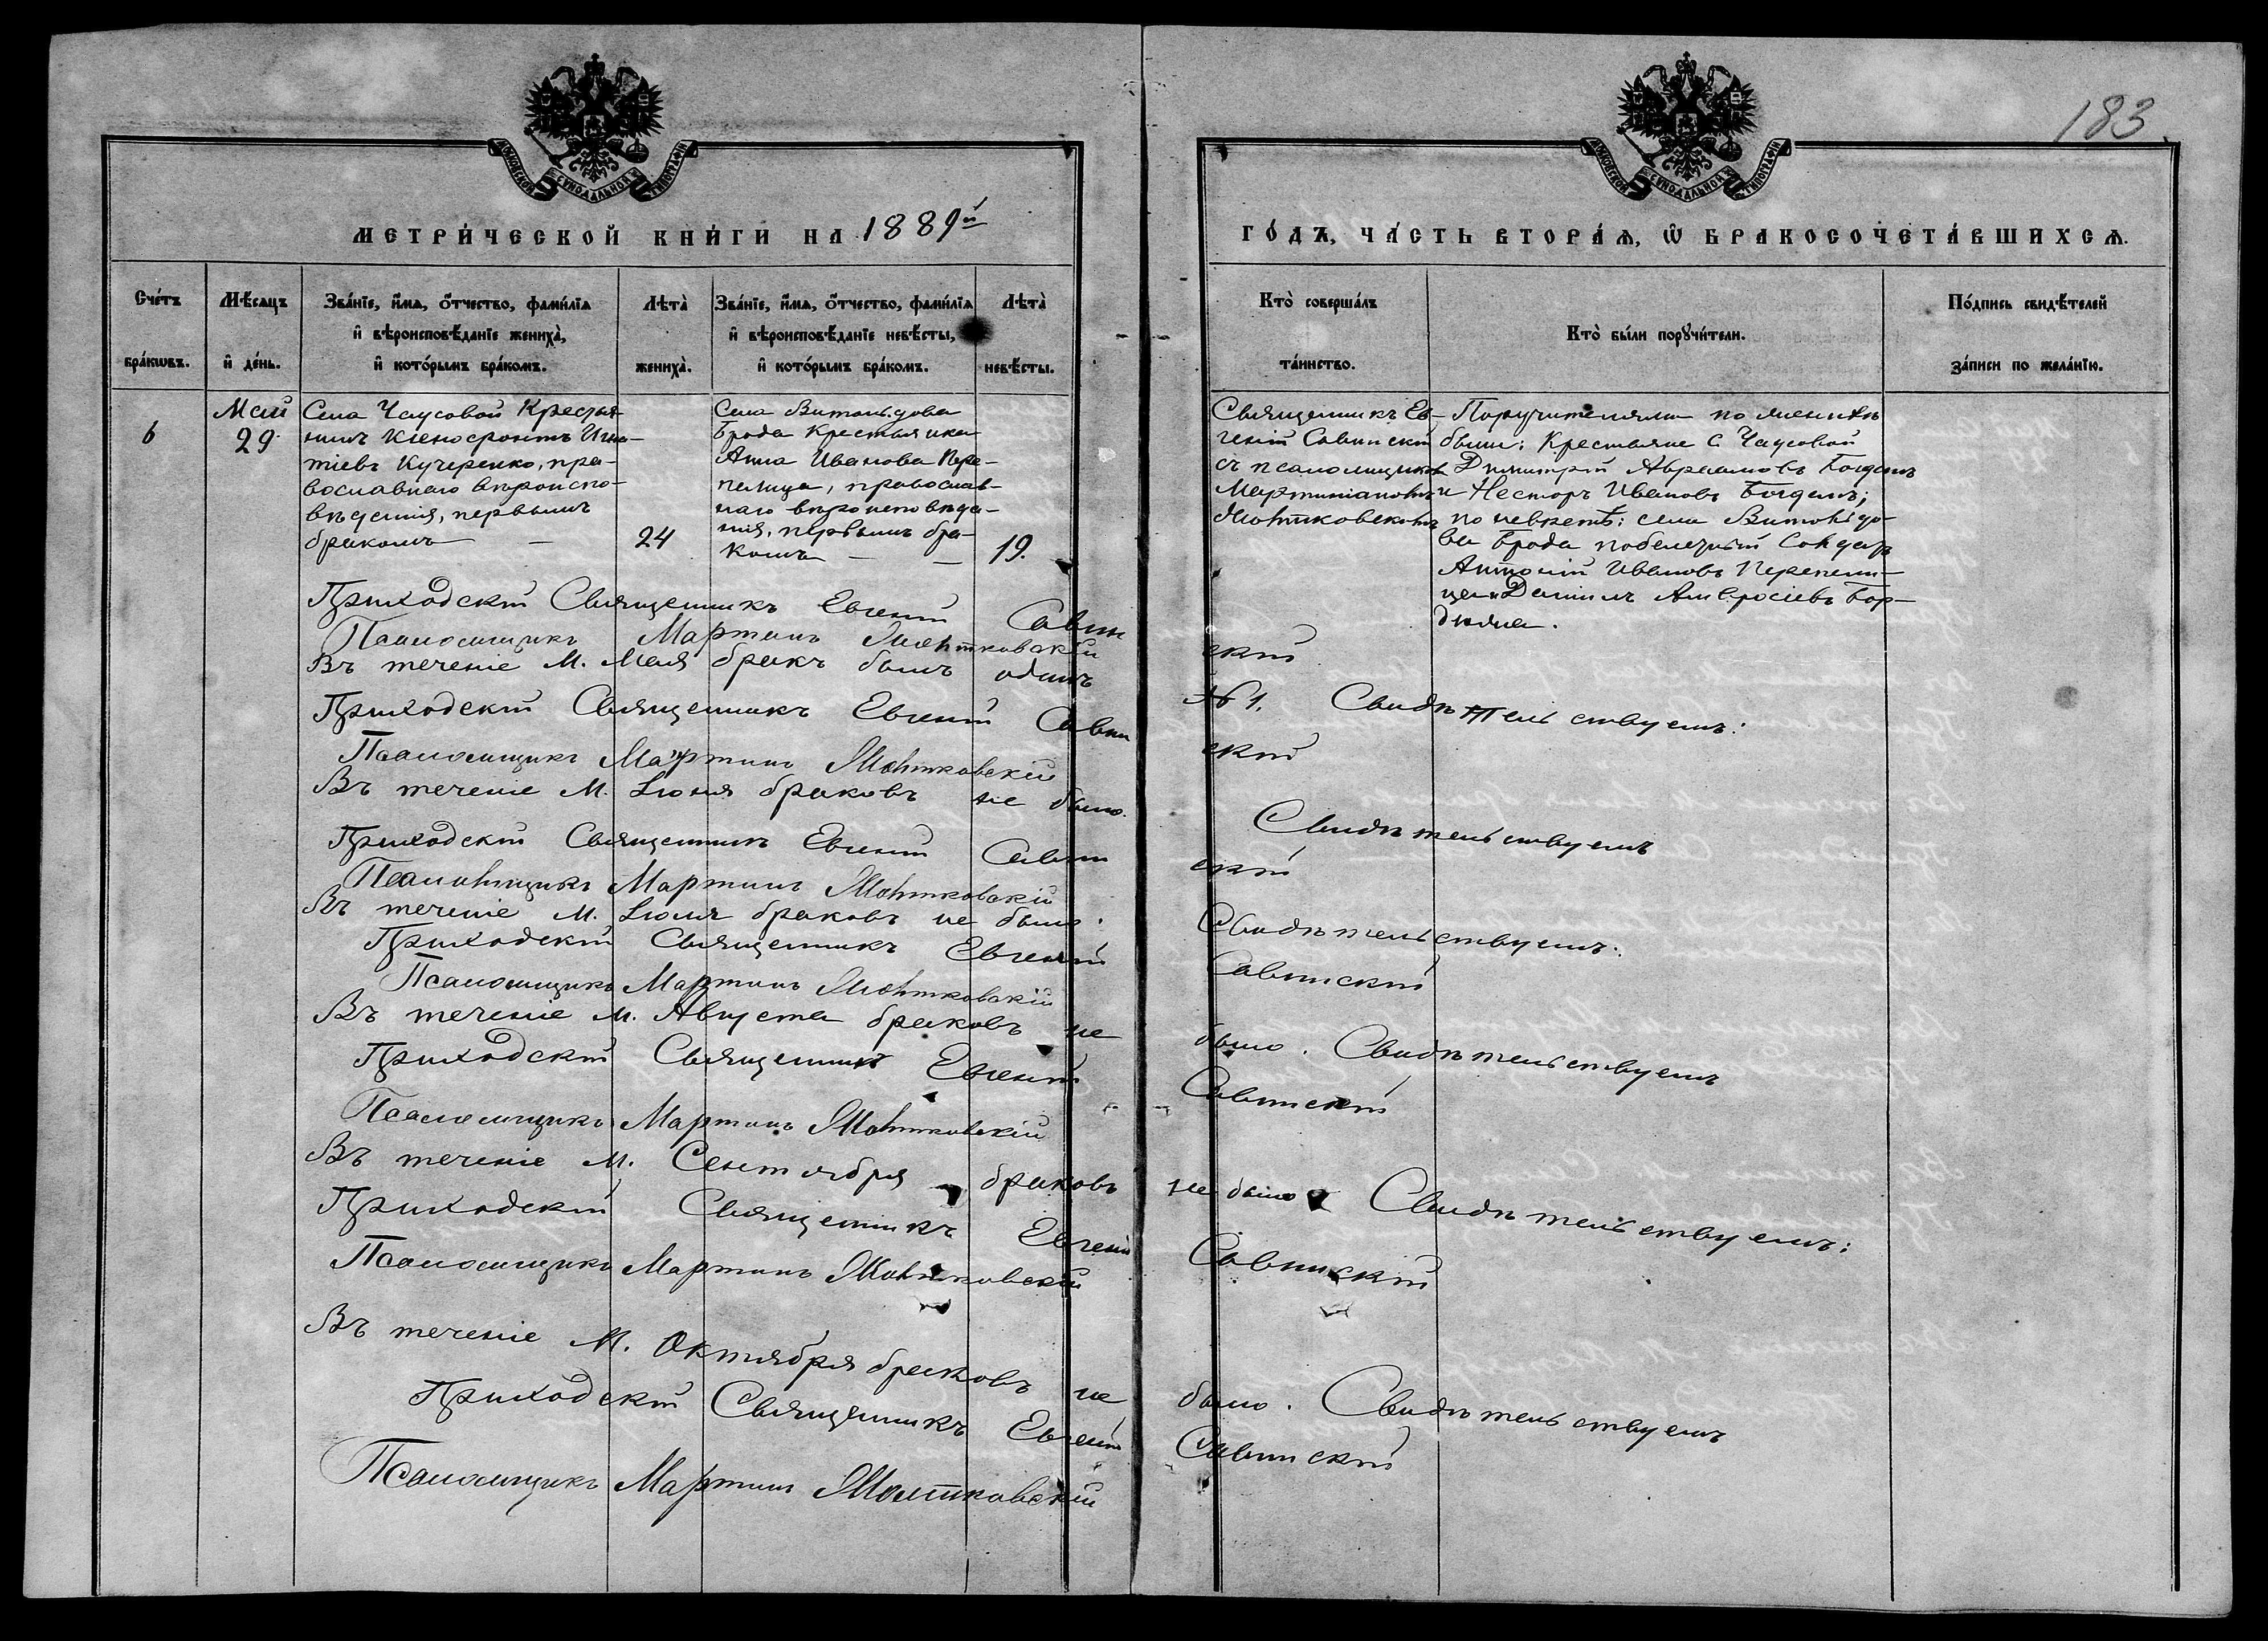 183
МОСКОВСКОЙ СѴНОДАЛЬНОЙ ТИПОГРАФІИ
МОСКОВСКОЙ СѴНОДАЛЬНОЙ ТИПОГРАФІИ
МЕТРИ́ЧЕСКОЙ КНИ́ГИ НА 1889й
ГО́ДА, ЧА́СТЬ ВТОРА́Я, Ѡ БРАКОСОЧЕТА́ВШИХСЯ.
Сче́тъ бра́кѡвъ.
Мѣ́сяцъ и де́нь.
Зва́нїе, и́мя, о́тчество, фами́лїа
и вѣроисповѣ́данїе жениха̀,
и кото́рымъ бра́комъ.
Лѣта̀ жениха̀.
Зва́нїе, и́мя, о́тчество, фами́лїа
и вѣроисповѣ́данїе невѣ́сты,
и кото́рымъ бра́комъ.
Лѣта̀ невѣ́сты.
Кто̀ соверша́лъ та́инство.
Кто̀ бы́ли порꙋчи́тели.
По́дпись свидѣ́телей за́писи по жела́нїю.
6
Май
29
Села Чаусовой Крестья-
нинъ Ксенофонтъ Игна-
тіевъ Кучеренко, пра-
вославнаго вѣроиспо-
вѣданія, первымъ
бракомъ —
24
Села Витольдова
Брода Крестьянка
Анна Иванова Пере-
пелица, православ-
наго вѣроисповѣда-
нія, первымъ бра-
комъ —
19.
Священникъ Ев-
геній Савинскій
съ псаломщикомъ
Мартиніаномъ
Мотковскимъ
Поручителями по женихѣ
были: Крестьяне с Чаусовой
Димитрій Авраамовъ Богданъ
и Несторъ Ивановъ Богданъ;
по невѣстѣ: села Витольдо-
ва Брода побелечный Солдатъ
Антоній Ивановъ Перепели-
ца и Даніилъ Амвросіевъ Бор-
дюжа.
Приходскій Священникъ Евгеній Савинскій
Псаломщикъ Мартинъ Мотковскій
Въ теченіе М. Мая бракъ былъ одинъ № 1. Свидѣтельствуемъ:
Приходскій Священникъ Евгеній Савинскій
Псаломщикъ Мартинъ Мотковскій
Въ теченіе М. Іюня браковъ не было. Свидѣтельствуемъ
Приходскій Священникъ Евгеній Савинскій
Псаломщикъ Мартинъ Мотковскій
Въ теченіе М. Іюля браковъ не было. Свидѣтельствуемъ:
Приходскій Священникъ Евгеній Савинскій
Псаломщикъ Мартинъ Мотковскій
Въ теченіе М. Августа браковъ не было. Свидѣтельствуемъ
Приходскій Священникъ Евгеній Савинскій
Псаломщикъ Мартинъ Мотковскій
Въ теченіе М. Сентября браковъ не было Свидѣтельствуемъ:
Приходскій Священникъ Евгеній Савинскій
Псаломщикъ Мартинъ Мотковскій
Въ теченіе М. Октября браковъ не было. Свидѣтельствуемъ
Приходскій Священникъ Евгеній Савинскій
Псаломщикъ Мартинъ Мотковскій